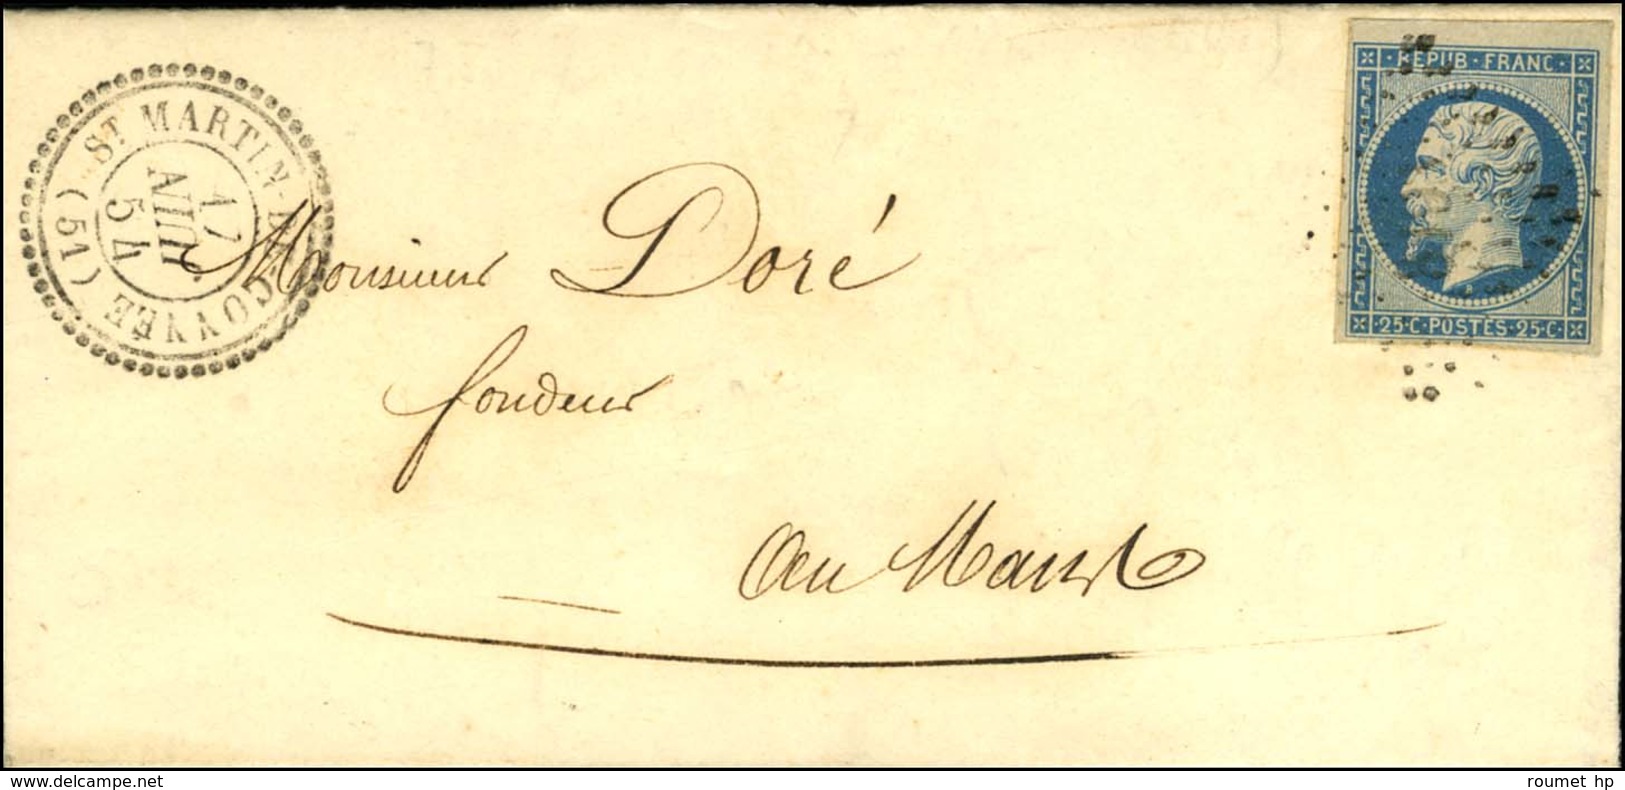 ST MARTIN-DE-CONNÉE
(51)
17
JUIN
54
REPUB·FRANC·
25·C·POSTES·25·C·
Monsieur Doré
fondeur
au Mans
roumet hp